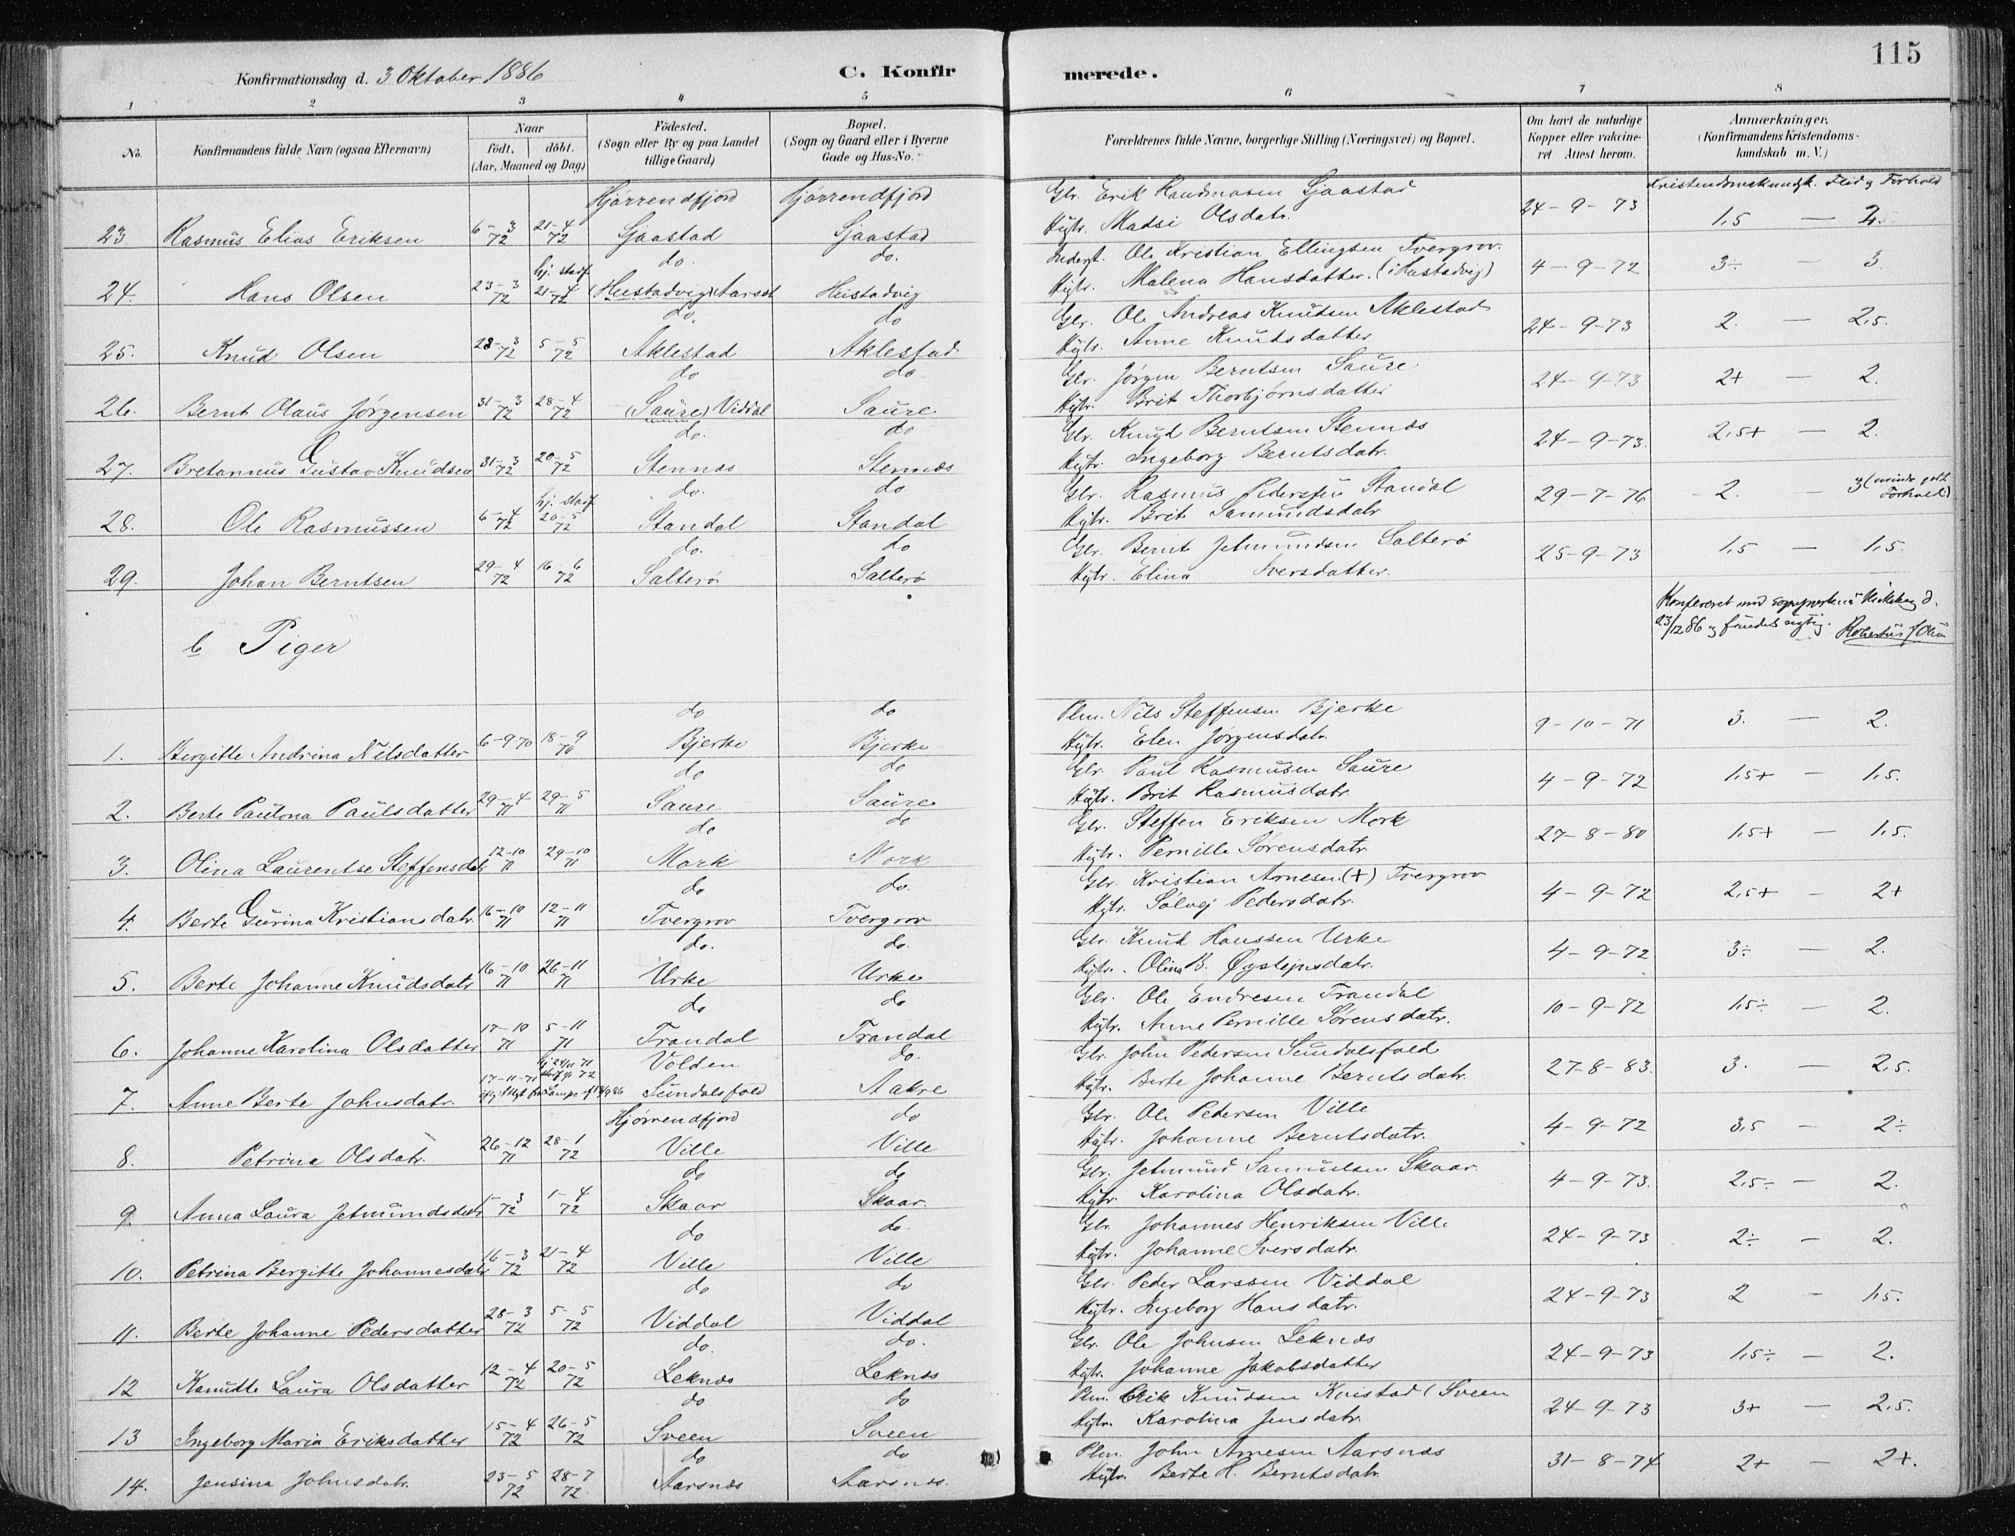 115
Konfirmationsdag d. 3 Oktober 1886 C. Konfirmerede.
1 2 3 4 5 6 7 8
No. Konfirmandens fulde Navn (ogsaa Efternavn) Naar født. døbt. (Aar, Maaned og Dag) Födested. (Sogn eller By og paa Landet tillige Gaard) Bopæl. (Sogn og Gaard eller i Byerne Gade og Hus-No.) Forældrenes fulde Navne, borgerlige Stilling (Næringsvei) og Bopæl. Om havt de naturlige Kopper eller vaccineret Attest herom. Anmærkninger. (Konfirmandens Kristendomskundskab m. V.)
Hjørrendfjord Hjørrendfjord Gbr. Erik Rasmusen Sjaastad Kristendomskundsk. Flid og Forhold
23 Rasmus Elias Eriksen 6-3 72 21-4 72 Sjaastad Sjaastad Hstr. Madsi Olsdatr. 24-9-73 1,5 — 2.
do. do. Inderst. Ole Kristian Ellingsen Tvergrov.
24. Hans Olsen 23-3 72 hj. stadf. 21-4 72 (Hustadvig) Aarset Hustadvig Hstr. Malena Hansdatter. (i Hustadvig) 4-9-72 3÷ — 3
do. do Gbr. Ole Andreas Knutsen Aklestad
25. Knud Olsen 28-3 72 5-5 72 Aklestad Aklestad Hstr. Anne Knutsdatter 24-9-73 2. — 2,5.
do do Gbr. Jørgen Berntsen Saure
26. Bernt Olaus Jørgensen 31-3 72 28-4 72 (Saure) Viddal Saure Hstr. Brit Thorbjørnsdatter 24-9-73 2+ — 2.
do. do Gbr. Knud Berntsen Stennæs
27. Bretannus Gustav Knudsen 31-3 72 20-5 72 Stennæs Stennæs Hstr. Ingeborg Berntsdatr. 24-9-73. 2,5+ — 2.
do. do Gbr. Rasmus Pedersen Standal
28. Ole Rasmussen 6-4 72 hj. stadf. 20-5 72 Standal Standal Hstr. Brit Samundsdatr 29-7-76 2. — 3 (mindre godt Forhold)
do. do Gbr. Bernt Jetmundsen Salterø
29. Johan Berntsen 29-4 72 16-6 72 Salterø Salterø Hstr. Elina Iversdatter. 25-9-73 1,5 — 1,5.
b Piger Konfereret med Sognepræstens Kirkebog d.
23/12 86 og fundet rigtig.
do do Plm. Nils Steffensen Bjerke
1. Bergitte Andrina Nilsdatter 6-9 70 18-9 70 Bjerke Bjerke Hstr. Elen Jørgensdatr. 9-10-71 3. — 2.
do do Gbr. Paul Rasmusen Saure
2. Berte Paulona Paulsdatter 29-4 71 29-5 71 Saure Saure Hstr. Brit Rasmusdatr. 4-9-72 1,5+ — 1,5.
do do Gbr. Steffen Eriksen Mork
3. Olina Laurentse Steffensdatr 12-10 71 29-10 71 Mork Mork Hstr. Pernille Sørensdatr. 27-8-80 1,5+ — 1,5.
do do. Gbr. Kristian Arnesen (+) Tvergrov
4. Berte Gurina Kristiansdatr. 16-10 71 12-11 71 Tvergrov Tvergrov Hstr. Sølvej Pedersdatr. 4-9-72 2,5+ — 2+
do. do. Gbr. Knud Hanssen Urke
5. Berte Johanne Knudsdatr 16-10 71 26-11 71 Urke Urke Hstr. Olina B. Øystejnsdatr. 4-9-72 3÷ — 2.
do do Gbr. Ole Endresen Trandal
6. Johanne Karolina Olsdatter 17-10 71 5-11 71 Trandal Trandal Hstr. Anne Pernille Sørensdatr. 10-9-72 1,5÷ — 2.
Volden do. Gbr. John Pedersen Sundalsfold
7. Anne Berte Johnsdatr. 17-11-71 hj 24/11 71 Sundalsfold Aakre Hstr. Berte Johanne Berntsdatr. 27-8-83. 3. — 2,5.
Hjørrendfjord do Gbr. Ole Pedersen Ville
8. Petrina Olsdatr. 26-12 71 28-1 72 Ville Ville Hstr. Johanne Berntsdatr. 4-9-72 3,5 — 2÷
do do Gbr. Jetmund Samuelsen Skaar.
9. Anna Laura Jetmundsdatr 1-3 72 1-4 72 Skaar Skaar. Hstr. Karolina Olsdatr. 4-9-73. 2,5÷ — 2.
do do. Gbr. Johannes Henriksen Ville
10. Petrina Bergitte Johannesdatr 16-3 72 21-4 72 Ville Ville Hstr. Johanne Iversdatr. 24-9-73 2÷ — 2.
do do Gbr. Peder Larssen Viddal
11. Berte Johanne Pedersdatter 28-3 72 5-5 72 Viddal Viddal Hstr. Ingeborg Hansdatr. 24-9-73 2 — 1,5.
do. do. Gbr. Ole Johnsen Leknæs
12 Knudte Laura Olsdatter 12-4 72 20-5 72 Leknæs Leknæs Hstr. Johanne Jakobsdatter 24-9-73 1,5÷ — 2.
do do Plm. Erik Knudsen Kvistad (Sveen
13 Ingeborg Maria Eriksdatter 15-4 72 26-5 72 Sveen Sveen Hstr. Karolina Jensdatr. 24-9-73 3+ — 2,5.
do do Plm. John Arnesen Aarsnæs
14. Jensina Johnsdatr. 23-5 72 28-7 72 Aarsnæs Aarsnæs. Hstr. Berte H. Berntsdatr. 31-8-74 2+ — 2+.